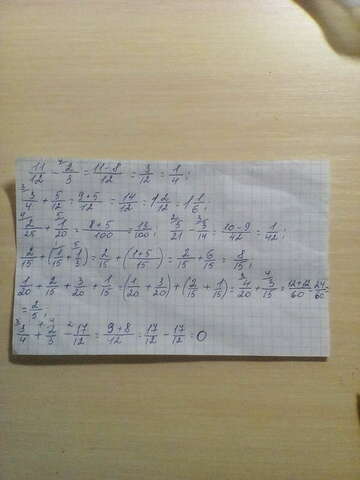 11/12 - ⁴2/3 = 11-8/12 = 3/12 = 1/4;
³3/4 + 5/12 = 9+5/12 = 14/12 = 1 2/12 = 1 1/6;
⁴2/25 + ⁵1/20 = 8+5/100 = 13/100; ²5/21 - ³3/14 = 10-9/42 = 1/42;
2/15 + (1/15 + ⁵1/3) = 2/15 + (1+5/15) = 2/15 + 6/15 = 8/15;
1/20 + 2/15 + 3/20 + 1/15 = (1/20 + 3/20) + (2/15 + 1/15) = ³4/20 + ⁴3/15 = 12+12/60 = 24/60 =
= 2/5;
³3/4 + ⁴2/3 - 17/12 = 9+8/12 = 17/12 - 17/12 = 0